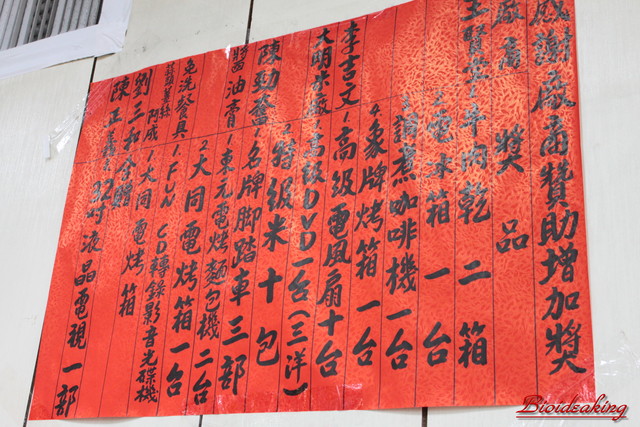 感謝廠商贊助增加獎
廠商 獎品
王賢堂 1牛肉乾 二箱
2電冰箱 一台
3調煮咖啡機一台
4象牌烤箱一台
李吉文 1高級電風扇十台
大明米廠 1高級DVD一台(三洋)
2特級米十包
陳勁蒼 1名牌腳踏車三部
醬油膏 1東元電烤麵包機二台
2大同電烤箱一台
免洗餐具 1FUN CD轉錄影音光碟機
阿成 1大同電烤箱
劉三和
陳正 32吋液晶電視一部
Bioidzaking